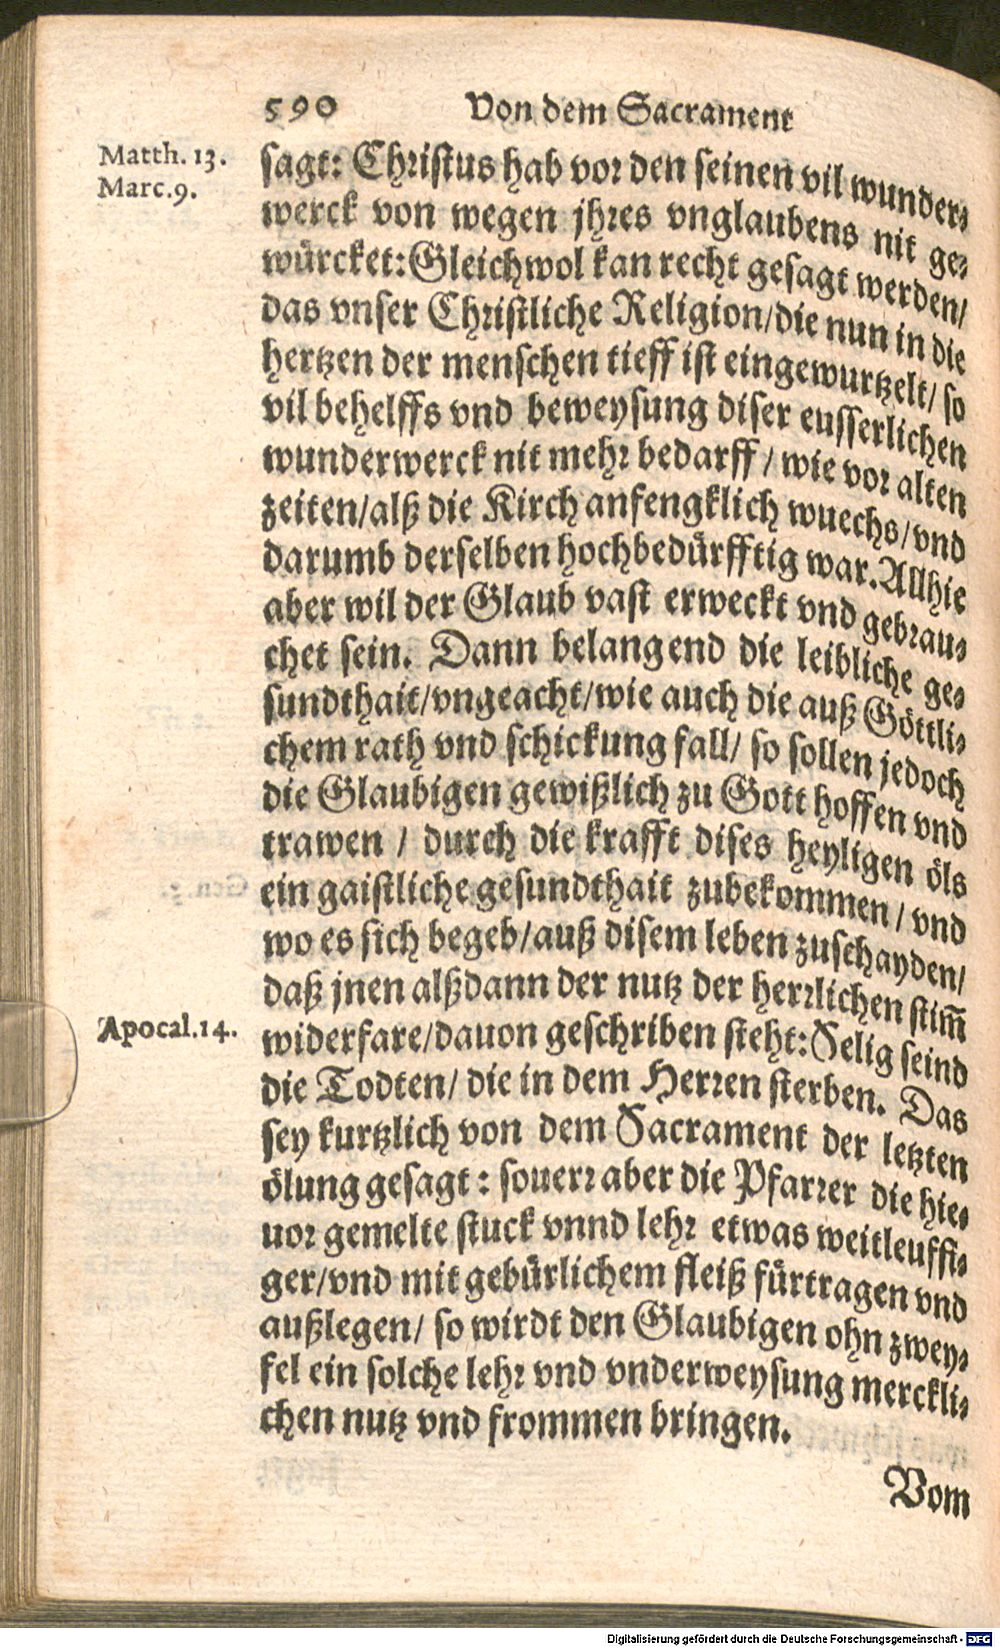 590 Von dem Sacrament
Matth. 13.
Marc. 9.
sagt: Christus hab vor den seinen vil wunder⸗
werck von wegen jhres vnglaubens nit ge⸗
würcket: Gleichwol kan recht gesagt werden/
das vnser Christliche Religion/die nun in die
hertzen der menschen tieff ist eingewurtzelt/ so
vil behelffs vnd beweysung diser eusserlichen
wunderwerck nit mehr bedarff / wie vor alten
zeiten/alß die Kirch anfengklich wuechs/vnd
darumb derselben hochbedürfftig war. Allhie
aber wil der Glaub vast erweckt vnd gebrau⸗
chet sein. Dann belangend die leibliche ge⸗
sundthait/vngeacht/wie auch die auß Göttli⸗
chem rath vnd schickung fall/ so sollen jedoch
die Glaubigen gewißlich zu Gott hoffen vnd
trawen / durch die krafft dises heyligen öls
ein gaistliche gesundthait zubekommen / vnd
wo es sich begeb/auß disem leben zuschayden/
daß jnen alßdann der nutz der herrlichen stim̄
Apocal. 14.
widerfare/dauon geschriben steht: Selig seind
die Todten/ die in dem Herren sterben. Das
sey kurtzlich von dem Sacrament der letzten
ölung gesagt: souerr aber die Pfarrer die hie⸗
uor gemelte stuck vnnd lehr etwas weitleuffi⸗
ger/vnd mit gebürlichem fleiß fürtragen vnd
außlegen/ so wirdt den Glaubigen ohn zwey⸗
fel ein solche lehr vnd vnderweysung merckli⸗
chen nutz vnd frommen bringen.
Vom
Digitalisierung gefördert durch die Deutsche Forschungsgemeinschaft - DFG